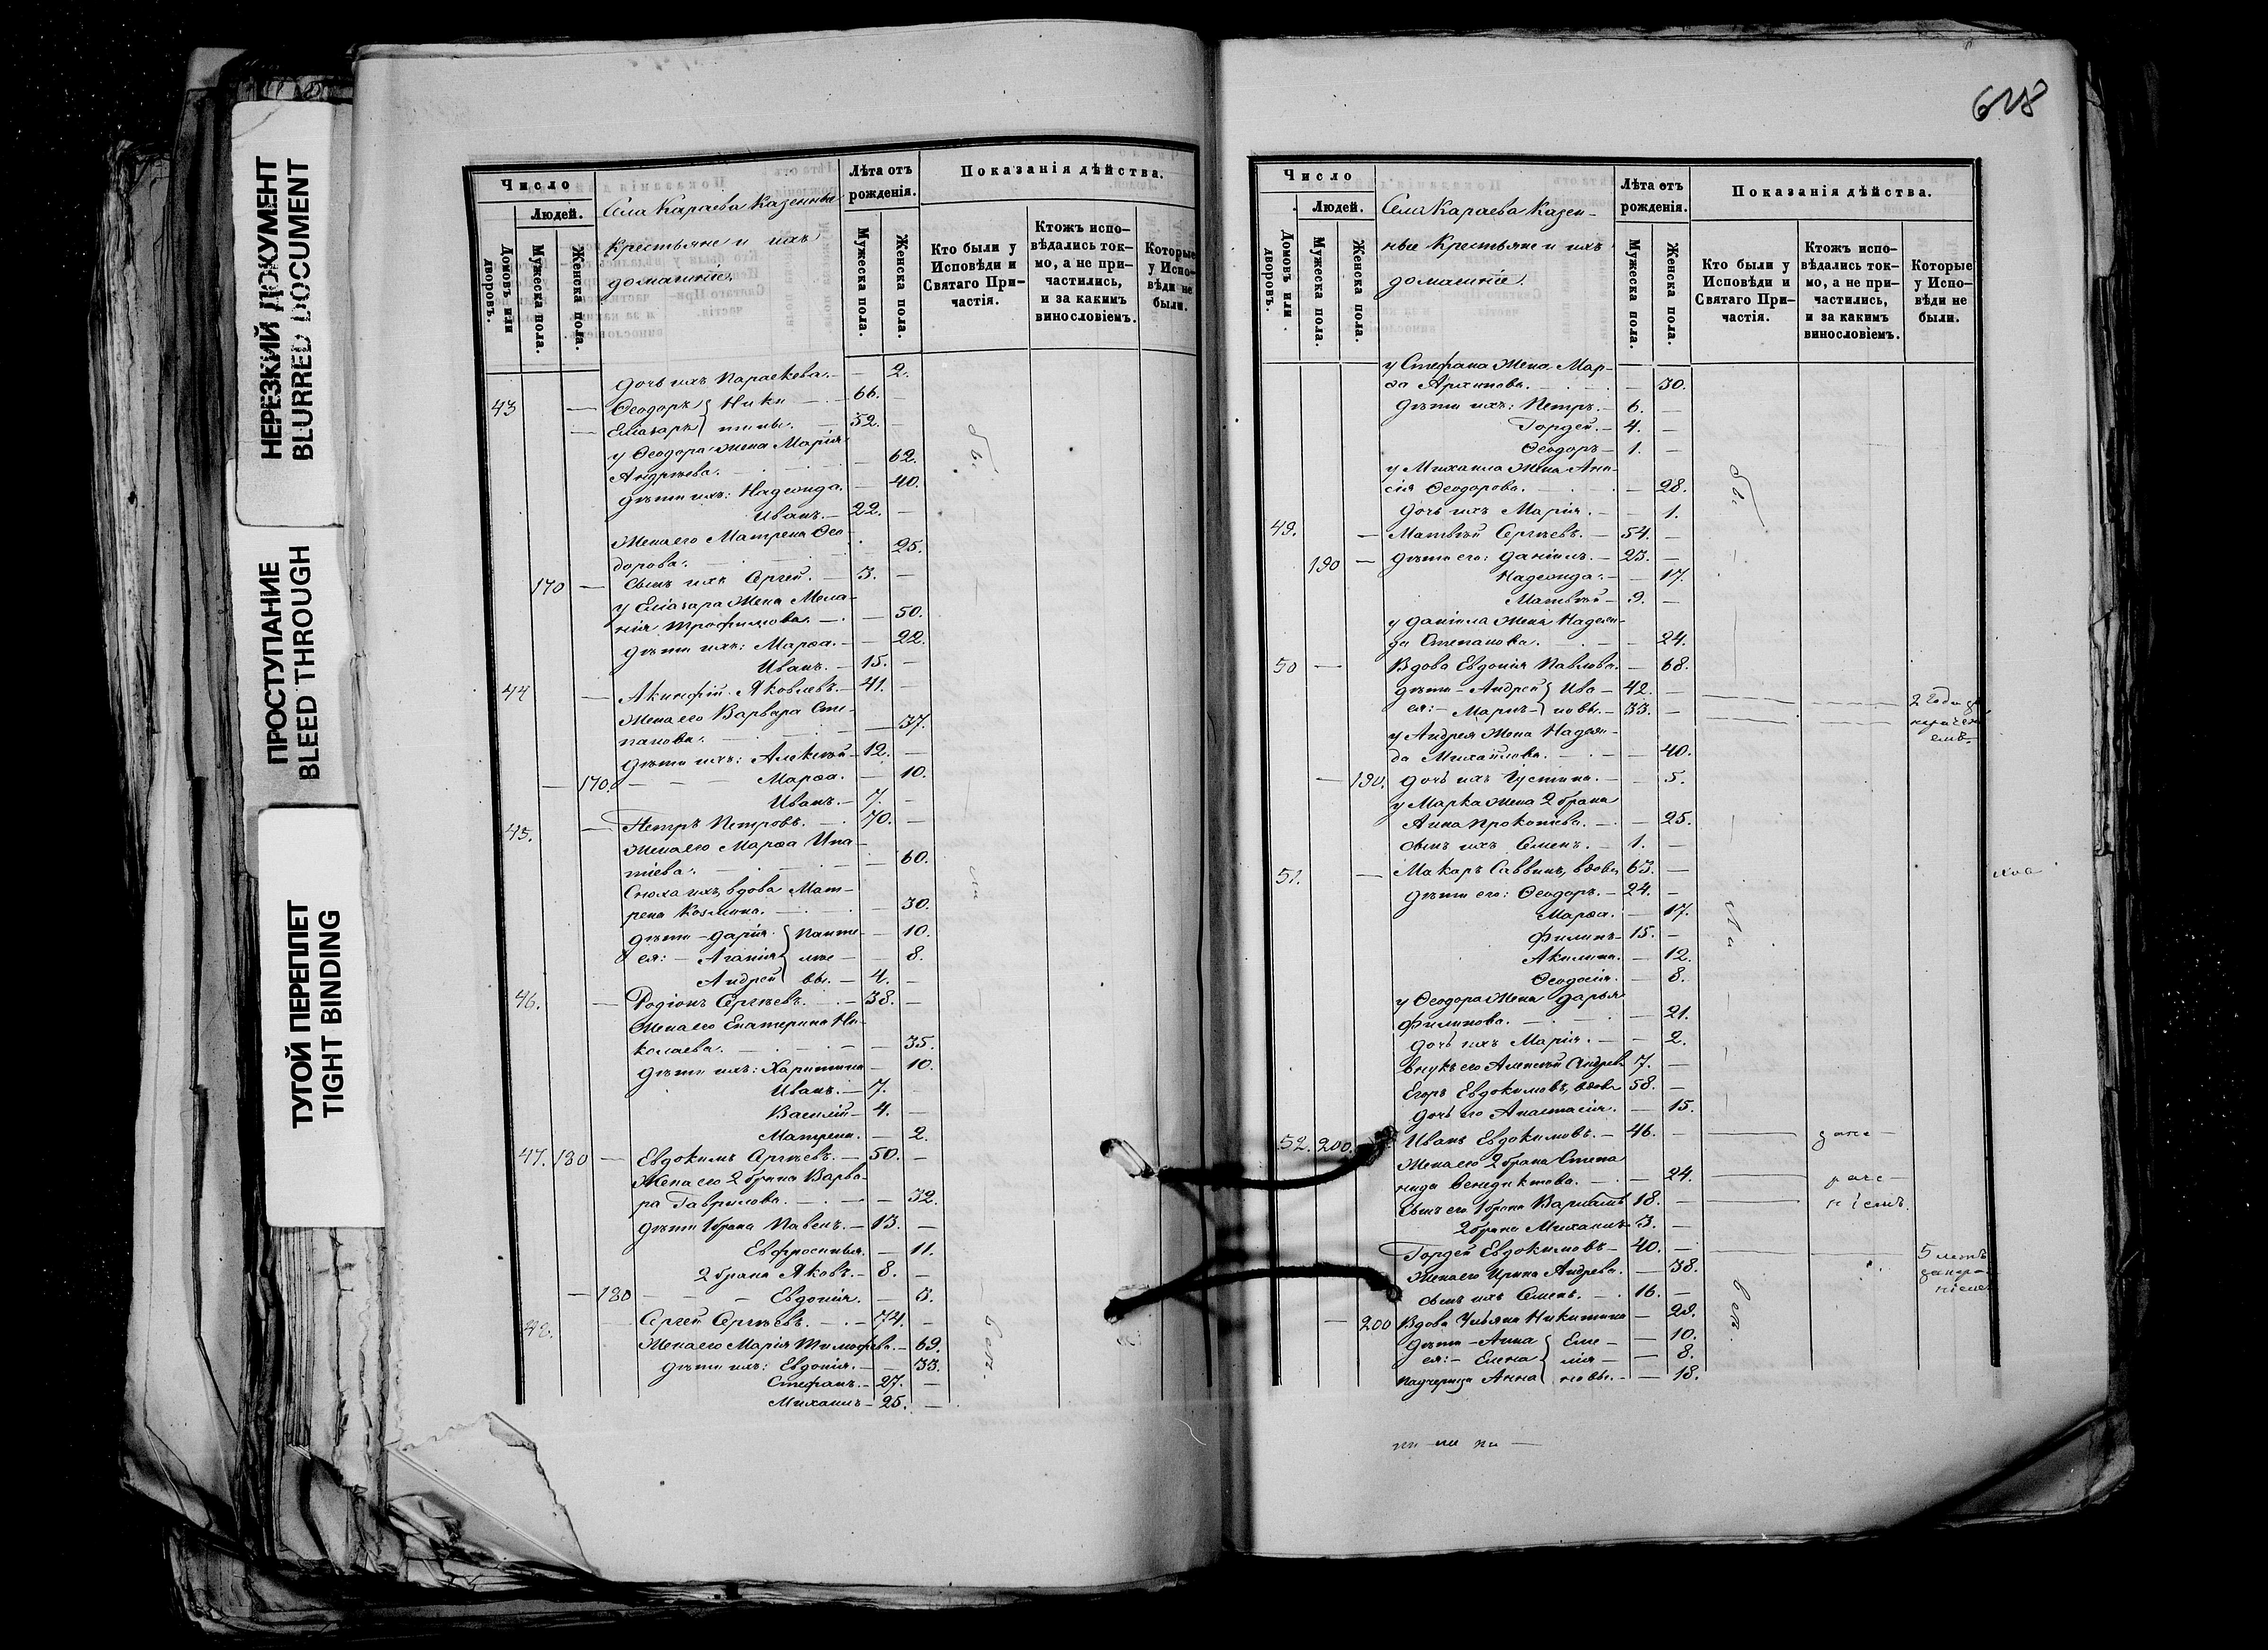 НЕРЕЗКИЙ ДОКУМЕНТ
BLURRED DOCUMENT
ПРОСТУПАНИЕ
BLEED THROUGH
ТУГОЙ ПЕРЕПЛЕТ
TIGHT BINDING
Число
Людей.
Домовъ или дворовъ.
Мужеска пола.
Женска пола.
Села Караева Казенные
Крестьяне и ихъ
домашніе.
Лѣта отъ рожденія.
Мужеска пола.
Женска пола.
Показанія дѣйства.
Кто были у Исповѣди и Святаго Причастія.
Ктожъ исповѣдались токмо, а не причастились, и за какимъ винословіемъ.
Которые у Исповѣди не были.
дочь ихъ Параскева. — 2.
43 — Ѳеодоръ } Ники — 66. —
— Еліазаръ } тины. — 52. —
у Ѳеодора жена Марія
Андреева. — 62.
дѣти ихъ: Надежда. — 40.
Иванъ. — 22. —
Жена его Матрена Ѳео-
дорова. — 25.
170 — Сынъ ихъ Сергей. — 3. —
у Еліазара жена Мела-
нія Трофимова. — 50.
дѣти ихъ: Марѳа. — 22.
Иванъ. — 15. —
44 — Акинфій Яковлевъ. — 41. —
Жена его Варвара Сте-
панова. — 37.
дѣти ихъ: Алексѣй — 12. —
— 170. — Марѳа. — 10.
Иванъ. — 7. —
45. — Петръ Петровъ. — 70. —
Жена его Марѳа Ипа-
тіева. — 60.
Сноха ихъ, вдова Мат-
рена Козмина. — 30.
дѣти — Дарія } Панте — 10.
ея: — Агаѳія } лѣе — 8.
Андрей } вы. — 4. —
46. — Родіонъ Сергѣевъ. — 38. —
Жена его Екатерина Ни-
колаева. — 35.
дѣти ихъ: Харитина — 10.
Иванъ. — 7. —
Василій — 4. —
Матрена. — 2.
47. 180 — Евдокимъ Сергѣевъ. — 50. —
Жена его 2 брака Варва-
ра Гаврилова. — 32.
дѣти 1 брака Павелъ. — 13. —
Евфросинья. — 11.
2 брака Яковъ. — 8. —
— 180 — Евдокія. — 3.
48. Сергей Сергѣевъ. — 74. —
Жена его Марія Тимоѳеева. — 69.
дѣти ихъ: Евдокія. — 33.
Стефанъ. — 27. —
Михаилъ — 25. —
628
Число
Людей.
Домовъ или дворовъ.
Мужеска пола.
Женска пола.
Села Караева Казен-
ные Крестьяне и ихъ
домашніе.
Лѣта отъ рожденія.
Мужеска пола.
Женска пола.
Показанія дѣйства.
Кто были у Исповѣди и Святаго Причастія.
Ктожъ исповѣдались токмо, а не причастились, и за какимъ винословіемъ.
Которые у Исповѣди не были.
у Стефана жена Мар-
ѳа Архипова. — 30.
дѣти ихъ: Петръ. — 6. —
Гордей. — 4. —
Ѳеодоръ — 1. —
у Михаила жена Ани-
сія Ѳеодорова. — 28.
дочь ихъ Марія. — 1.
49. — Матвѣй Сергѣевъ. — 54. —
190 — дѣти его: Даніилъ. — 23. —
Надежда. — 17.
Матвѣй — 9. —
у Даніила жена Надеж-
да Степанова. — 24.
50 — Вдова Евдокія Павлова. — 68.
дѣти — Андрей } Ива — 42. —
ея: — Маркъ — } новы. — 33. —
у Андрея жена Надеж-
да Михайлова. — 40.
— 190. дочь ихъ Іустина. — 5.
у Марка жена 2 брака
Анна Прокопьева. — 25.
сынъ ихъ Семенъ. — 1. —
51. — Макаръ Саввинъ, вдовъ 63. —
дѣти его: Ѳеодоръ. — 24. —
Марѳа. — 17.
Филипъ — 15. —
Акилина. — 12.
Ѳеодосія. — 8.
у Ѳеодора жена Дарья
Филипова. — 21.
дочь ихъ Марія. — 2.
внукъ его Алексѣй Андреевъ 7. —
Егоръ Евдокимовъ, вдовъ 58. —
дочь его Анастасія. — 15.
52. 200. Иванъ Евдокимовъ. — 46. —
Жена его 2 брака Степа
нида Венедиктова. — 24.
Сынъ его 1 брака Варлаамъ 18. —
2 брака Михаилъ — 3. —
Гордей Евдокимовъ — 40. —
Жена его Ирина Андреева. — 38.
сынъ ихъ Семенъ. — 16. —
— 200 Вдова Ульяна Никитина — 29.
дѣти — Анна } Еме — 10.
ея: — Елена } лія — 8.
падчерица Анна } новы. — 18.